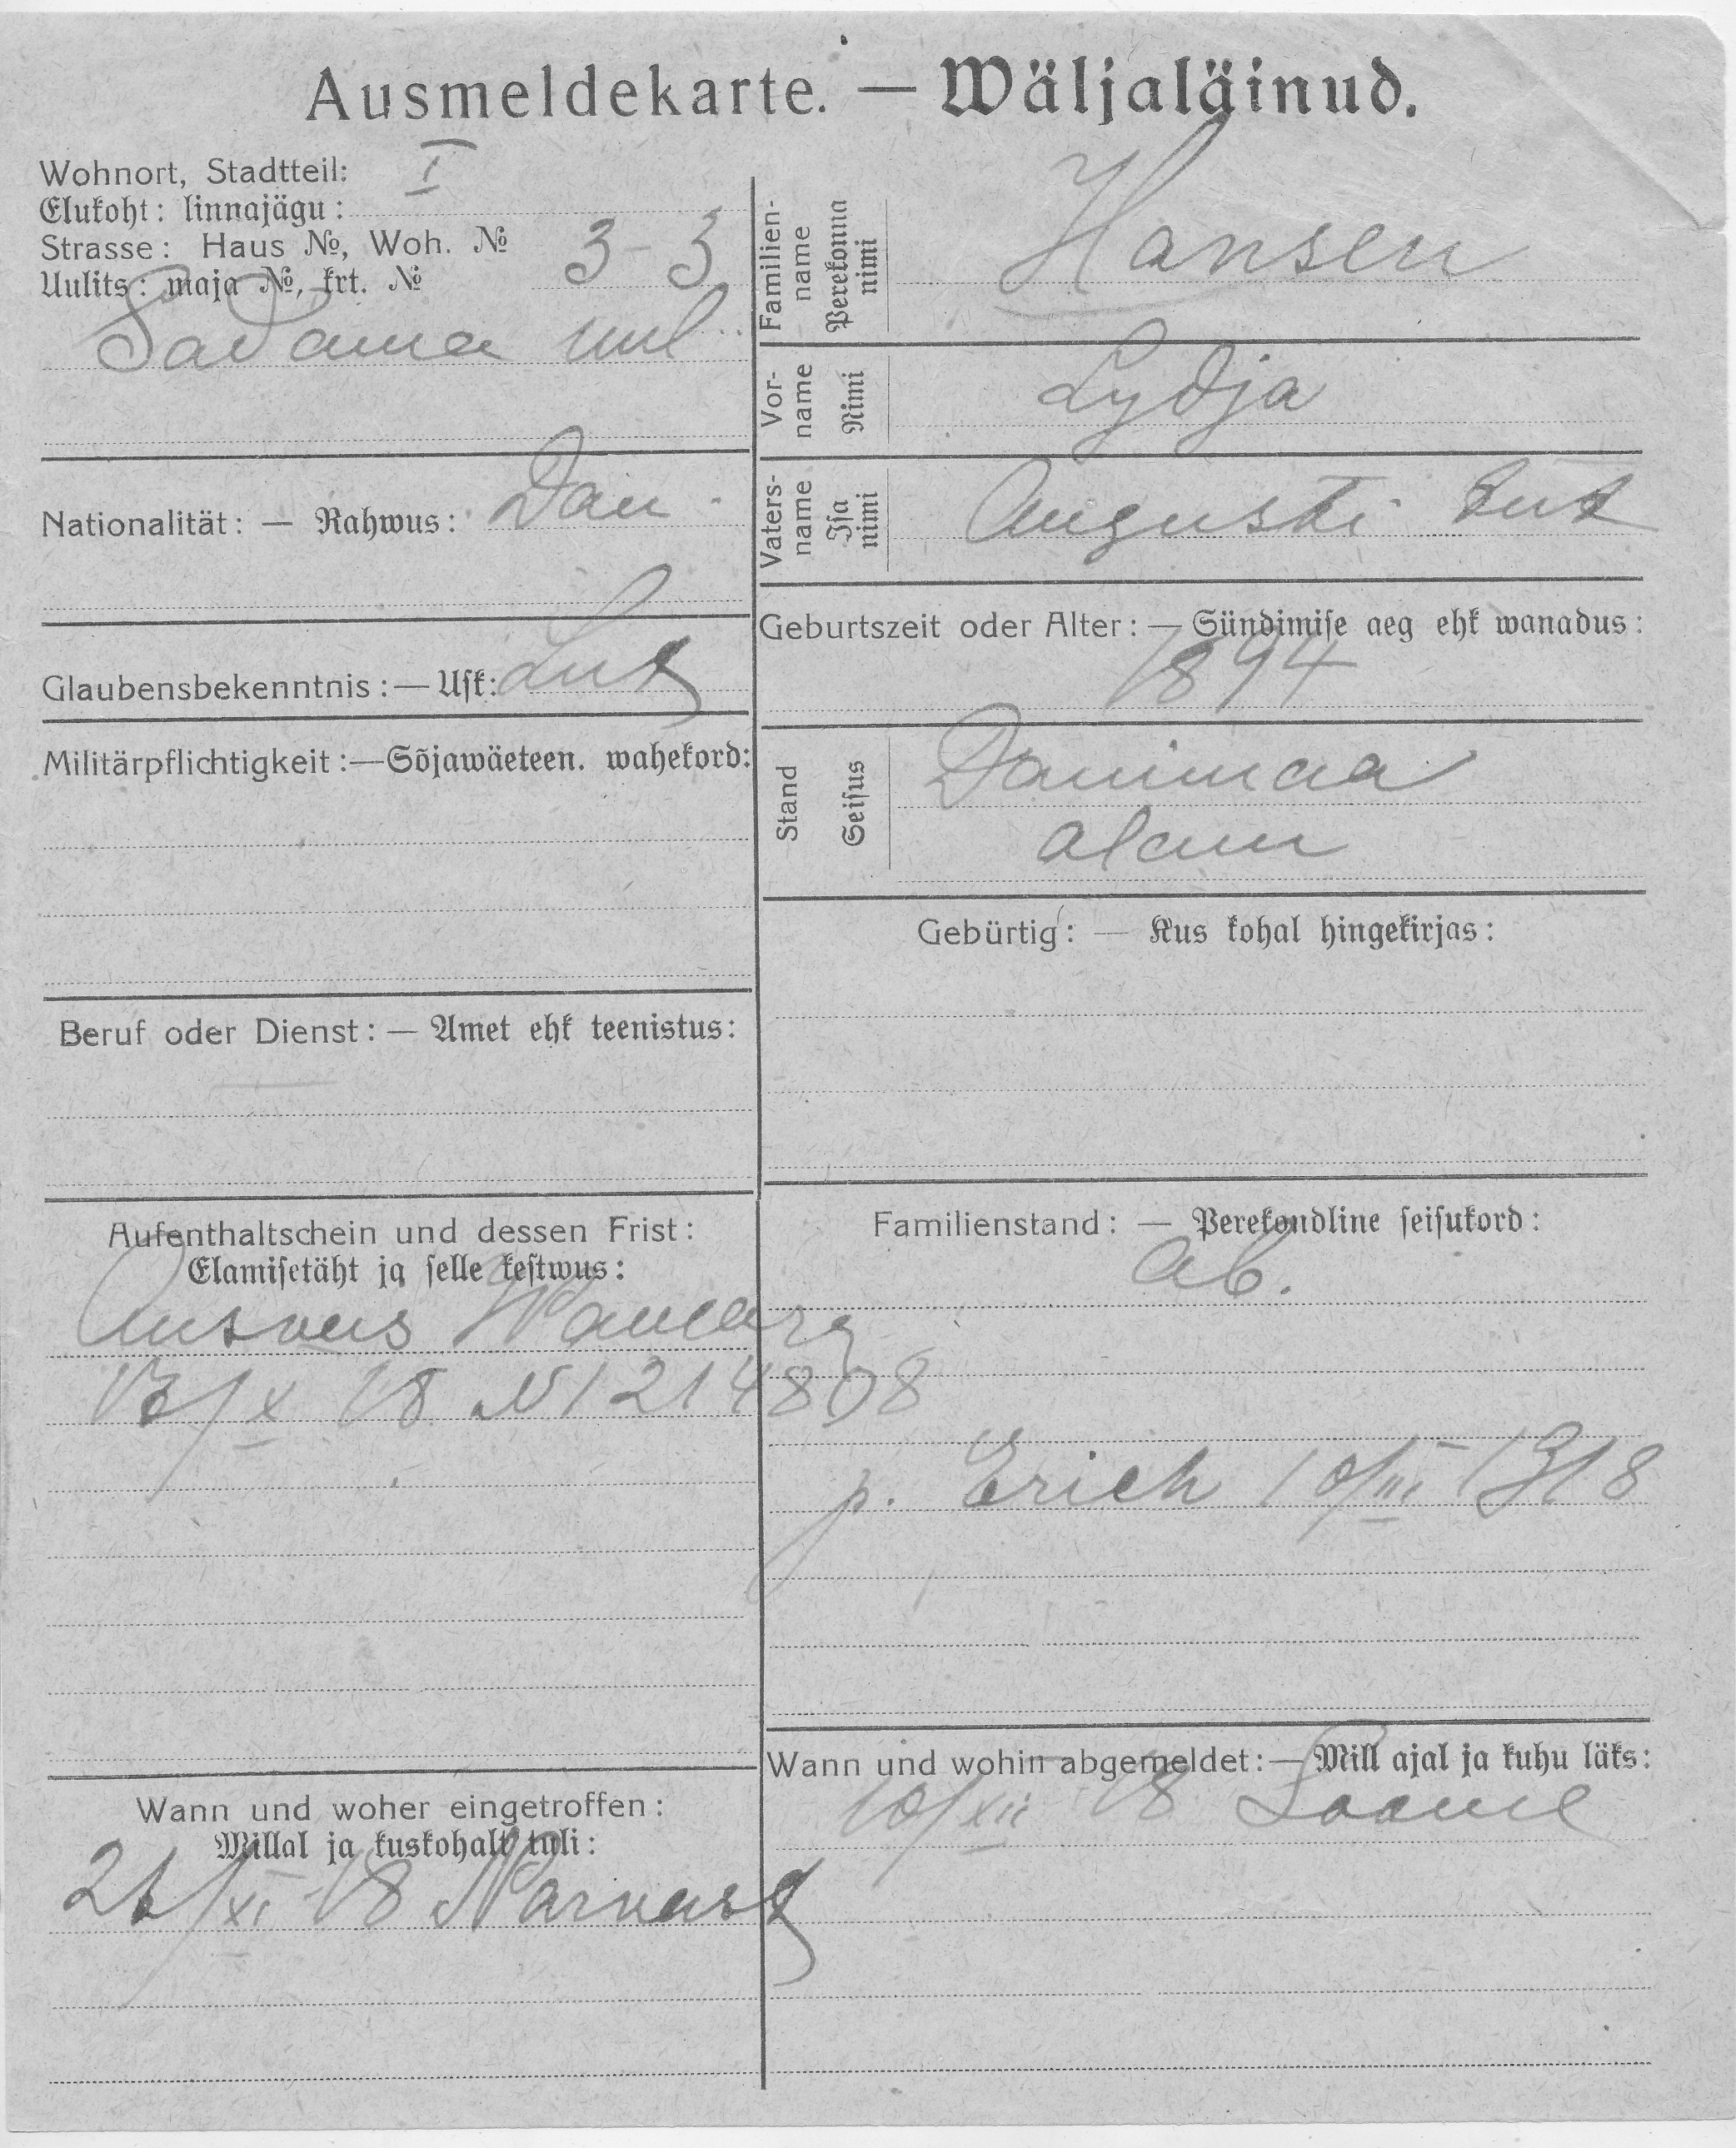 Ausmeldekarte. — Wäljaläinud.
Wohnort, Stadtteil: I
Elukoht: linnajägu:
Strasse: Haus №, Woh. № 3-3
Uulits: maja №, krt. №
Sadama uul
Nationalität: — Rahwus: Dan.
Glaubensbekenntnis: — Usk: Lut
Militärpflichtigkeit: — Sõjawäeteen. wahekord:
Beruf oder Dienst: — Amet ehk teenistus:
Aufenthaltschein und dessen Frist:
Elamisetäht ja selle kestwus:
Ausweis
/X 18 N 1214808
Wann und woher eingetroffen:
Millal ja kuskohalt tuli:
/XI 18 Narvast
Familienname Perekonna nimi Hansen
Vorname Nimi Lydja
Vatersname Isa nimi Augusti tüt
Geburtszeit oder Alter: — Sündimise aeg ehk wanadus:
1894
Stand Seisus Danimaa
alam
Gebürtig: — Kus kohal hingekirjas:
Familienstand: — Perekondline seisukord:
ab.
p. Erich 10/III 1918
Wann und wohin abgemeldet: — Mill ajal ja kuhu läks:
10/XII 18 Soome